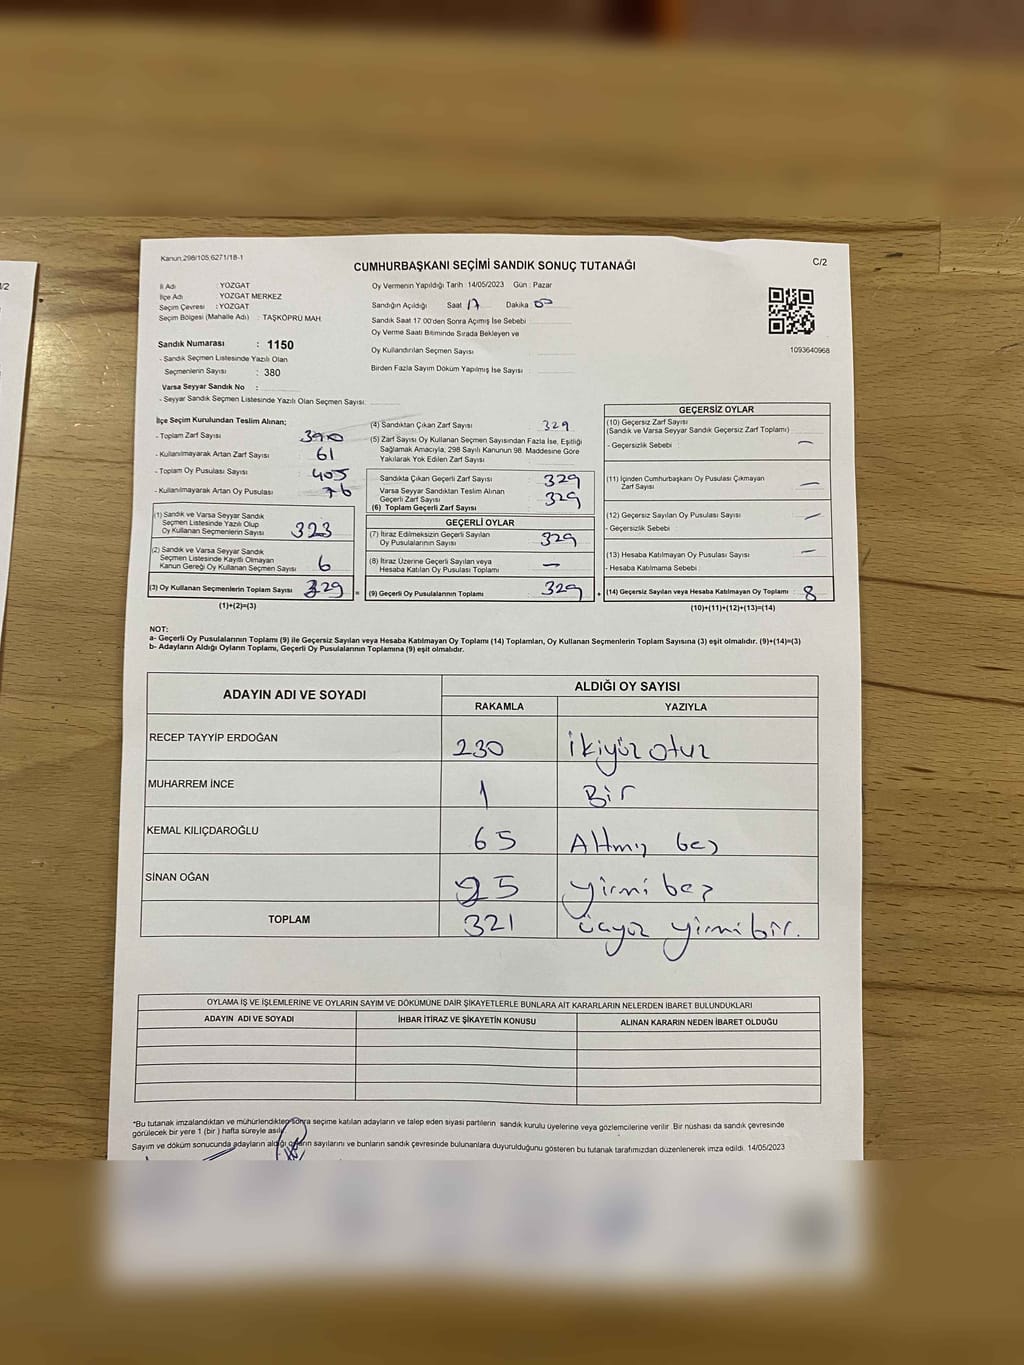 /2
Kanun:298/105;6271/18-1
C/2
CUMHURBAŞKANI SEÇİMİ SANDIK SONUÇ TUTANAĞI
İl Adı : YOZGAT
İlçe Adı : YOZGAT MERKEZ
Seçim Çevresi : YOZGAT
Seçim Bölgesi (Mahalle Adı) : TAŞKÖPRÜ MAH.
Sandık Numarası : 1150
- Sandık Seçmen Listesinde Yazılı Olan
Seçmenlerin Sayısı : 380
Varsa Seyyar Sandık No :
- Seyyar Sandık Seçmen Listesinde Yazılı Olan Seçmen Sayısı:
Oy Vermenin Yapıldığı Tarih : 14/05/2023 Gün : Pazar
Sandığın Açıldığı Saat 17 Dakika 00
Sandık Saat 17:00'den Sonra Açımış İse Sebebi
Oy Verme Saati Bitiminde Sırada Bekleyen ve
Oy Kullandırılan Seçmen Sayısı :
Birden Fazla Sayım Döküm Yapılmış İse Sayısı :
1093640968
İlçe Seçim Kurulundan Teslim Alınan;
- Toplam Zarf Sayısı 390
- Kullanılmayarak Artan Zarf Sayısı 61
- Toplam Oy Pusulası Sayısı 405
- Kullanılmayarak Artan Oy Pusulası 76
(1) Sandık ve Varsa Seyyar Sandık
Seçmen Listesinde Yazılı Olup
Oy Kullanan Seçmenlerin Sayısı 323
(2) Sandık ve Varsa Seyyar Sandık
Seçmen Listesinde Kayıtlı Olmayan
Kanun Gereği Oy Kullanan Seçmen Sayısı 6
(3) Oy Kullanan Seçmenlerin Toplam Sayısı 329 =
(1)+(2)=(3)
(4) Sandıktan Çıkan Zarf Sayısı 329
(5) Zarf Sayısı Oy Kullanan Seçmen Sayısından Fazla İse, Eşitliği
Sağlamak Amacıyla; 298 Sayılı Kanunun 98. Maddesine Göre
Yakılarak Yok Edilen Zarf Sayısı
Sandıkta Çıkan Geçerli Zarf Sayısı 329
Varsa Seyyar Sandıktan Teslim Alınan
Geçerli Zarf Sayısı 329
(6) Toplam Geçerli Zarf Sayısı
GEÇERLİ OYLAR
(7) İtiraz Edilmeksizin Geçerli Sayılan
Oy Pusulalarının Sayısı 329
(8) İtiraz Üzerine Geçerli Sayılan veya
Hesaba Katılan Oy Pusulası Toplamı —
(9) Geçerli Oy Pusulalarının Toplamı 329 +
GEÇERSİZ OYLAR
(10) Geçersiz Zarf Sayısı
(Sandık ve Varsa Seyyar Sandık Geçersiz Zarf Toplamı)
- Geçersizlik Sebebi : —
(11) İçinden Cumhurbaşkanı Oy Pusulası Çıkmayan
Zarf Sayısı —
(12) Geçersiz Sayılan Oy Pusulası Sayısı —
- Geçersizlik Sebebi :
(13) Hesaba Katılmayan Oy Pusulası Sayısı —
- Hesaba Katılmama Sebebi :
(14) Geçersiz Sayılan veya Hesaba Katılmayan Oy Toplamı : 8
(10)+(11)+(12)+(13)=(14)
NOT:
a- Geçerli Oy Pusulalarının Toplamı (9) ile Geçersiz Sayılan veya Hesaba Katılmayan Oy Toplamı (14) Toplamları, Oy Kullanan Seçmenlerin Toplam Sayısına (3) eşit olmalıdır. (9)+(14)=(3)
b- Adayların Aldığı Oyların Toplamı, Geçerli Oy Pusulalarının Toplamına (9) eşit olmalıdır.
ADAYIN ADI VE SOYADI
ALDIĞI OY SAYISI
RAKAMLA YAZIYLA
RECEP TAYYİP ERDOĞAN 230 ikiyüz otuz
MUHARREM İNCE 1 Bir
KEMAL KILIÇDAROĞLU 65 Altmış beş
SİNAN OĞAN 25 yirmi beş
TOPLAM 321 üçyüz yirmi bir.
OYLAMA İŞ VE İŞLEMLERİNE VE OYLARIN SAYIM VE DÖKÜMÜNE DAİR ŞİKAYETLERLE BUNLARA AİT KARARLARIN NELERDEN İBARET BULUNDUKLARI
ADAYIN ADI VE SOYADI İHBAR İTİRAZ VE ŞİKAYETİN KONUSU ALINAN KARARIN NEDEN İBARET OLDUĞU
*Bu tutanak imzalandıktan ve mühürlendikten sonra seçime katılan adayların ve talep eden siyasi partilerin sandık kurulu üyelerine veya gözlemcilerine verilir. Bir nüshası da sandık çevresinde
görülecek bir yere 1 (bir) hafta süreyle asılır.
Sayım ve döküm sonucunda adayların aldığı oyların sayılarını ve bunların sandık çevresinde bulunanlara duyurulduğunu gösteren bu tutanak tarafımızdan düzenlenerek imza edildi. 14/05/2023